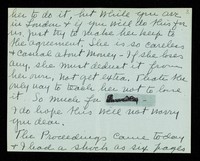 her to do it, but while you are
in London if you will do this for
us, just try to make her keep to
the agreement, she is so careless
& casual about money - If she loses
any, she must deduct it from
her own, not get extra. That's the
only way to teach her not to lose
it. So much for
I do hope this will not worry
you dear.
The Proceedings came today
& I had a shock as six pages